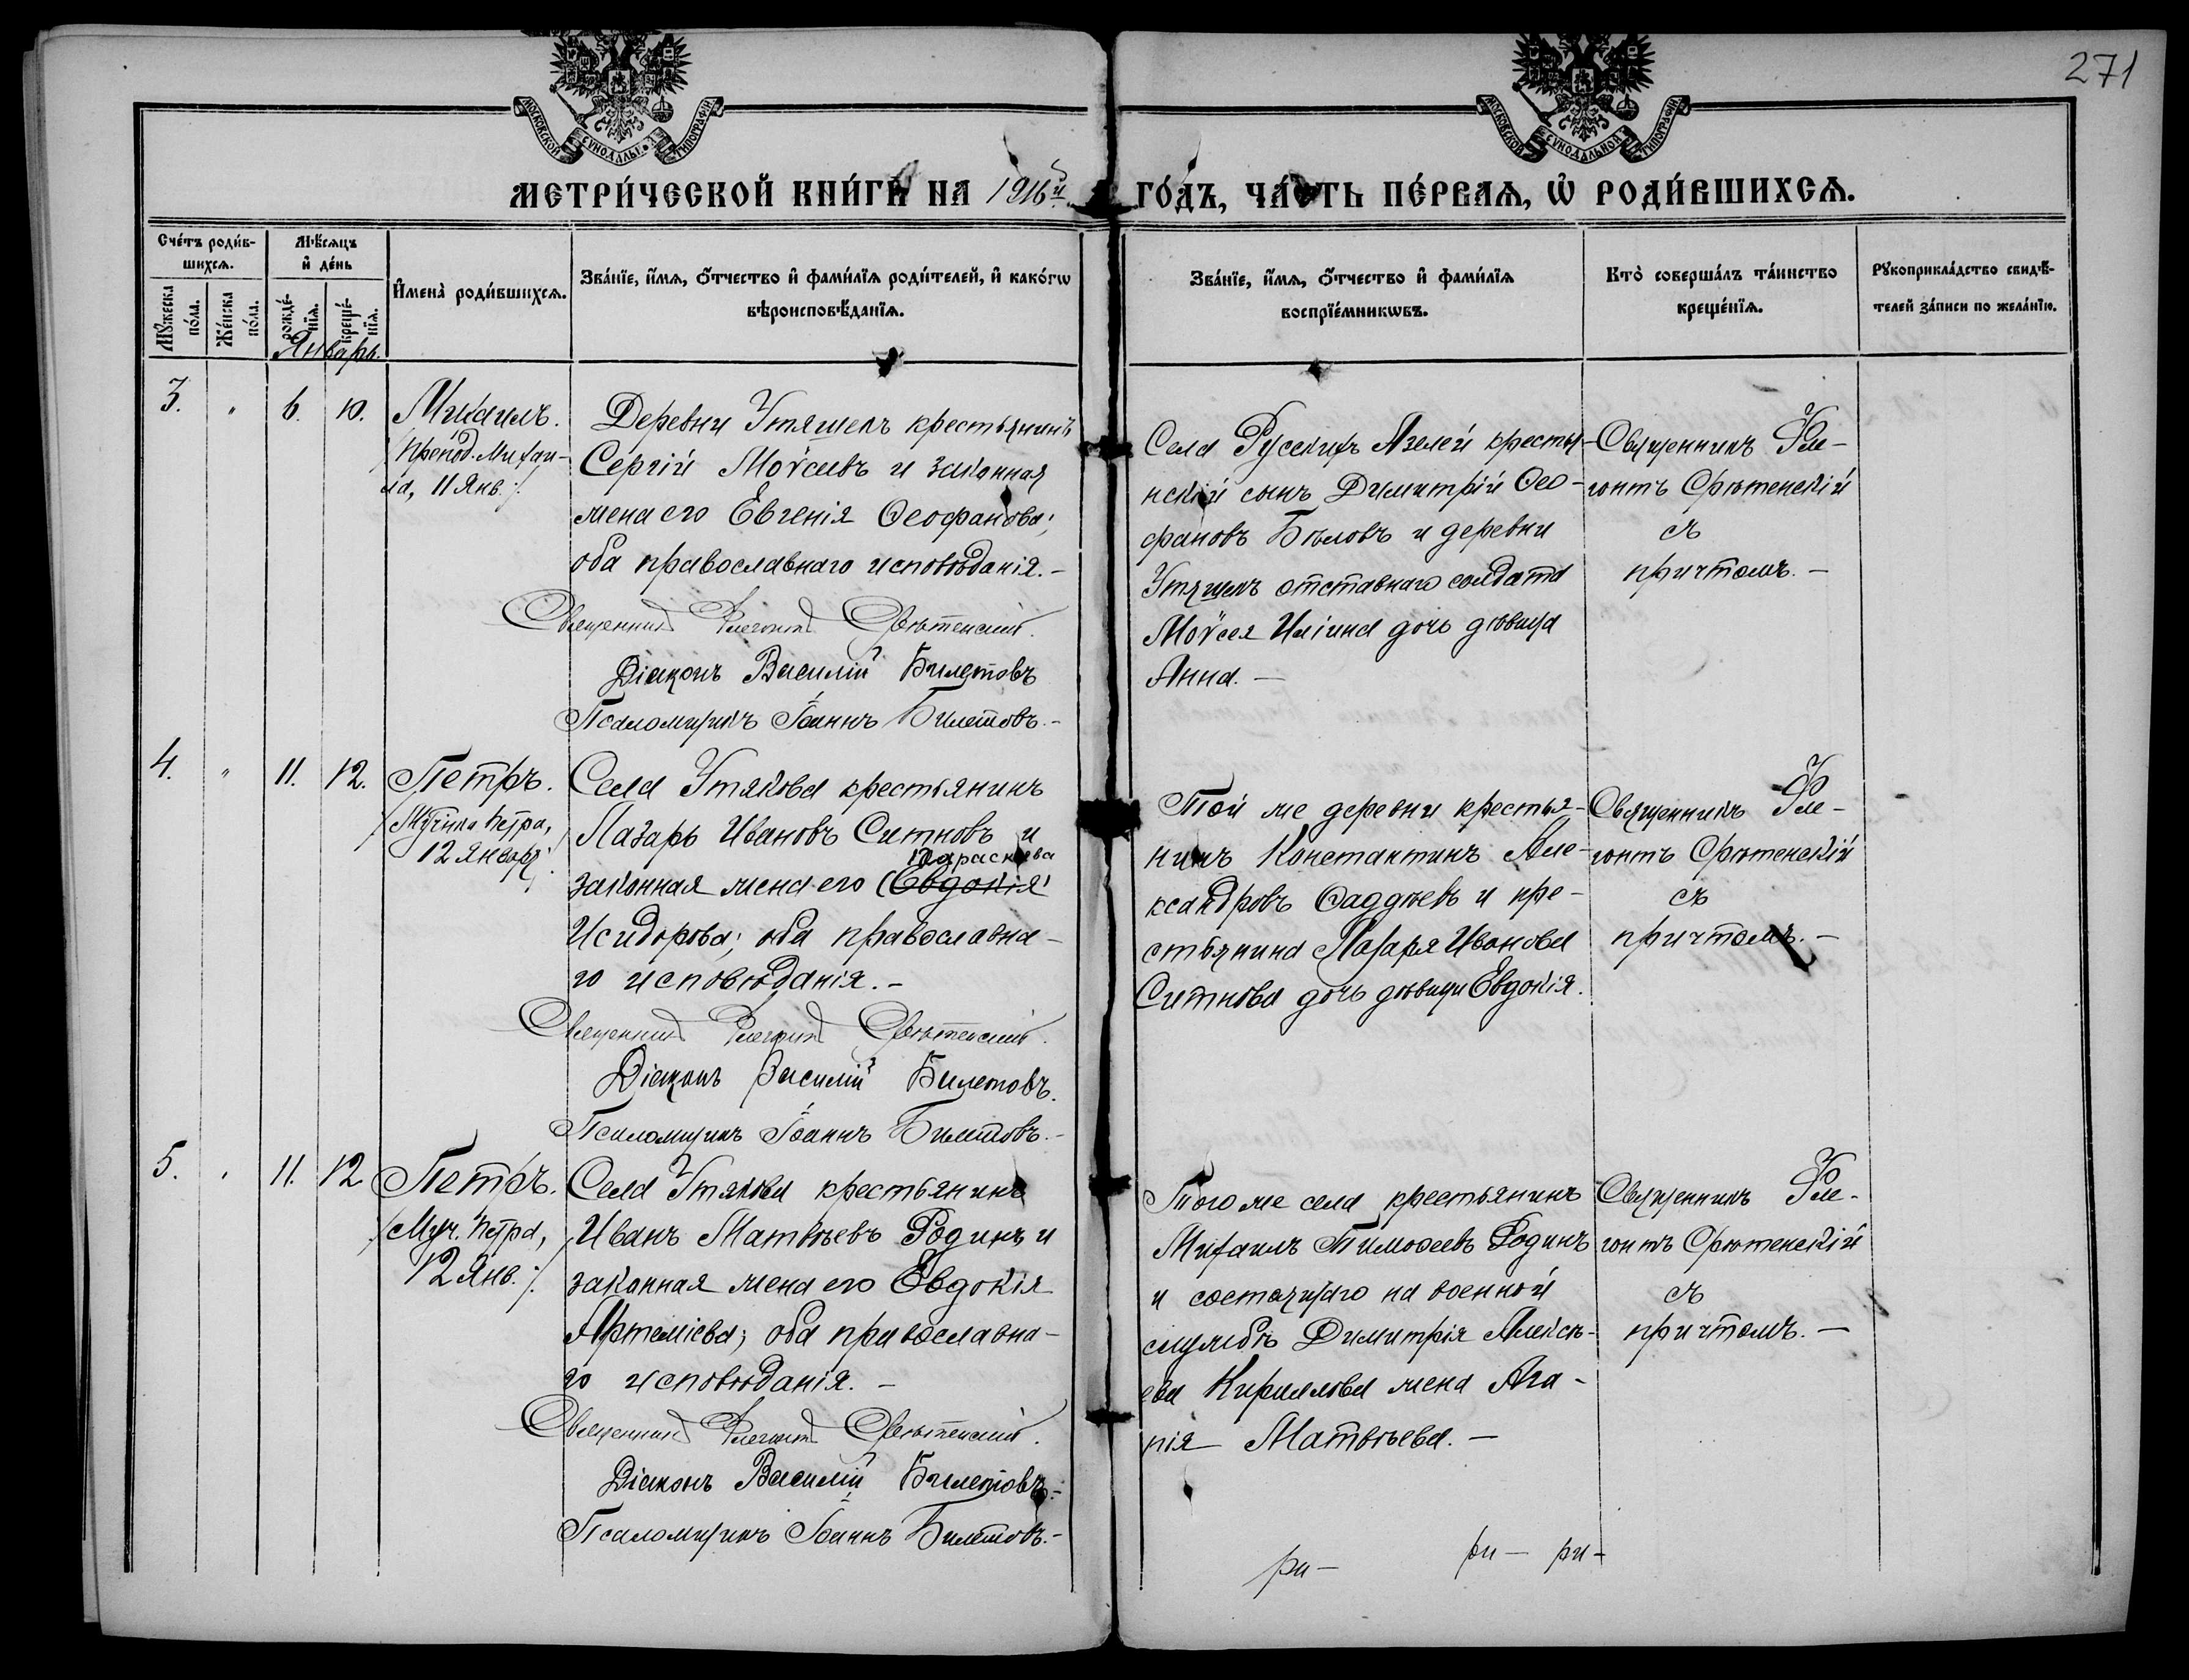 271
МОСКОВСКОЙ СѴНОДАЛЬНОЙ ТИПОГРАФІИ
МОСКОВСКОЙ СѴНОДАЛЬНОЙ ТИПОГРАФІИ
МЕТРИ́ЧЕСКОЙ КНИ́ГИ НА 1916й
ГО́ДЪ, ЧА́СТЬ ПЕ́РВАѦ, Ѽ РОДИ́ВШИХСѦ.
Сче́тъ роди́в-
шихсѧ.
Мꙋ́жеска
по́ла.
Же́нска
по́ла.
Мѣ́сѧцъ
и҆ де́нь
рожде́-
нїѧ.
креще́-
нїѧ.
И҆мена̀ роди́вшихсѧ.
Зва́нїе, и҆́мѧ, ѻ҆́тчество и҆ фами́лїѧ роди́телей, и҆ како́гѡ
вѣроисповѣ́данїѧ.
Зва́нїе, и҆́мѧ, ѻ҆́тчество и҆ фами́лїѧ
воспрїе́мникѡвъ.
Кто̀ соверша́лъ та́инство
креще́нїѧ.
Рꙋкоприкла́дство свидѣ́-
телей за́писи по жела́нїю.
Январь.
3. " 6. 10. Михаилъ.
/Препод. Михаи-
ла, 11 Янв./.
Деревни Утяшекъ крестьянинъ
Сергій Моѵсеевъ и законная
жена его Евгенія Ѳеофанова;
оба православнаго исповѣданія.-
Священникъ Флегонтъ Срѣтенскій.
Діаконъ Василій Билетовъ
Псаломщикъ Іоаннъ Билетовъ.-
Села Русскихъ Азелей крестья-
нскій сынъ Димитрій Ѳео-
фановъ Бѣловъ и деревни
Утяшекъ отставнаго солдата
Моѵсея Иліина дочь дѣвица
Анна. -
Священникъ Фле-
гонтъ Срѣтенскій
съ
причтомъ. -
4. " 11. 12. Петръ.
/Мученика Петра,
12 Января/.
Села Утякова крестьянинъ
Лазарь Ивановъ Ситновъ и
Параскева
законная жена его Евдокія
Исидорова; оба православна-
го исповѣданія. -
Священникъ Флегонтъ Срѣтенскій.
Діаконъ Василій Билетовъ.
Псаломщикъ Іоаннъ Билетовъ.-
Той же деревни крестья-
нинъ Константинъ Але-
ксандровъ Ѳаддѣевъ и кре-
стьянина Лазаря Иванова
Ситнова дочь дѣвица Евдокія.
Священникъ Фле-
гонтъ Срѣтенскій
съ
причтомъ. -
5. " 11. 12 Петръ.
/Муч. Петра,
12 Янв./.
Села Утякова крестьянинъ
Иванъ Матвѣевъ Родинъ и
законная жена его Евдокія
Артеміева; оба православна-
го исповѣданія. -
Священникъ Флегонтъ Срѣтенскій.
Діаконъ Василій Билетовъ.-
Псаломщикъ Іоаннъ Билетовъ.-
Того же села крестьянинъ
Михаилъ Тимоѳеевъ Родинъ
и состоящаго на военной
службѣ Димитрія Алексѣ-
ева Кириллова жена Ага-
пія Матвѣева. -
Священникъ Фле-
гонтъ Срѣтенскій
съ
причтомъ. -
ри- ри- ри-